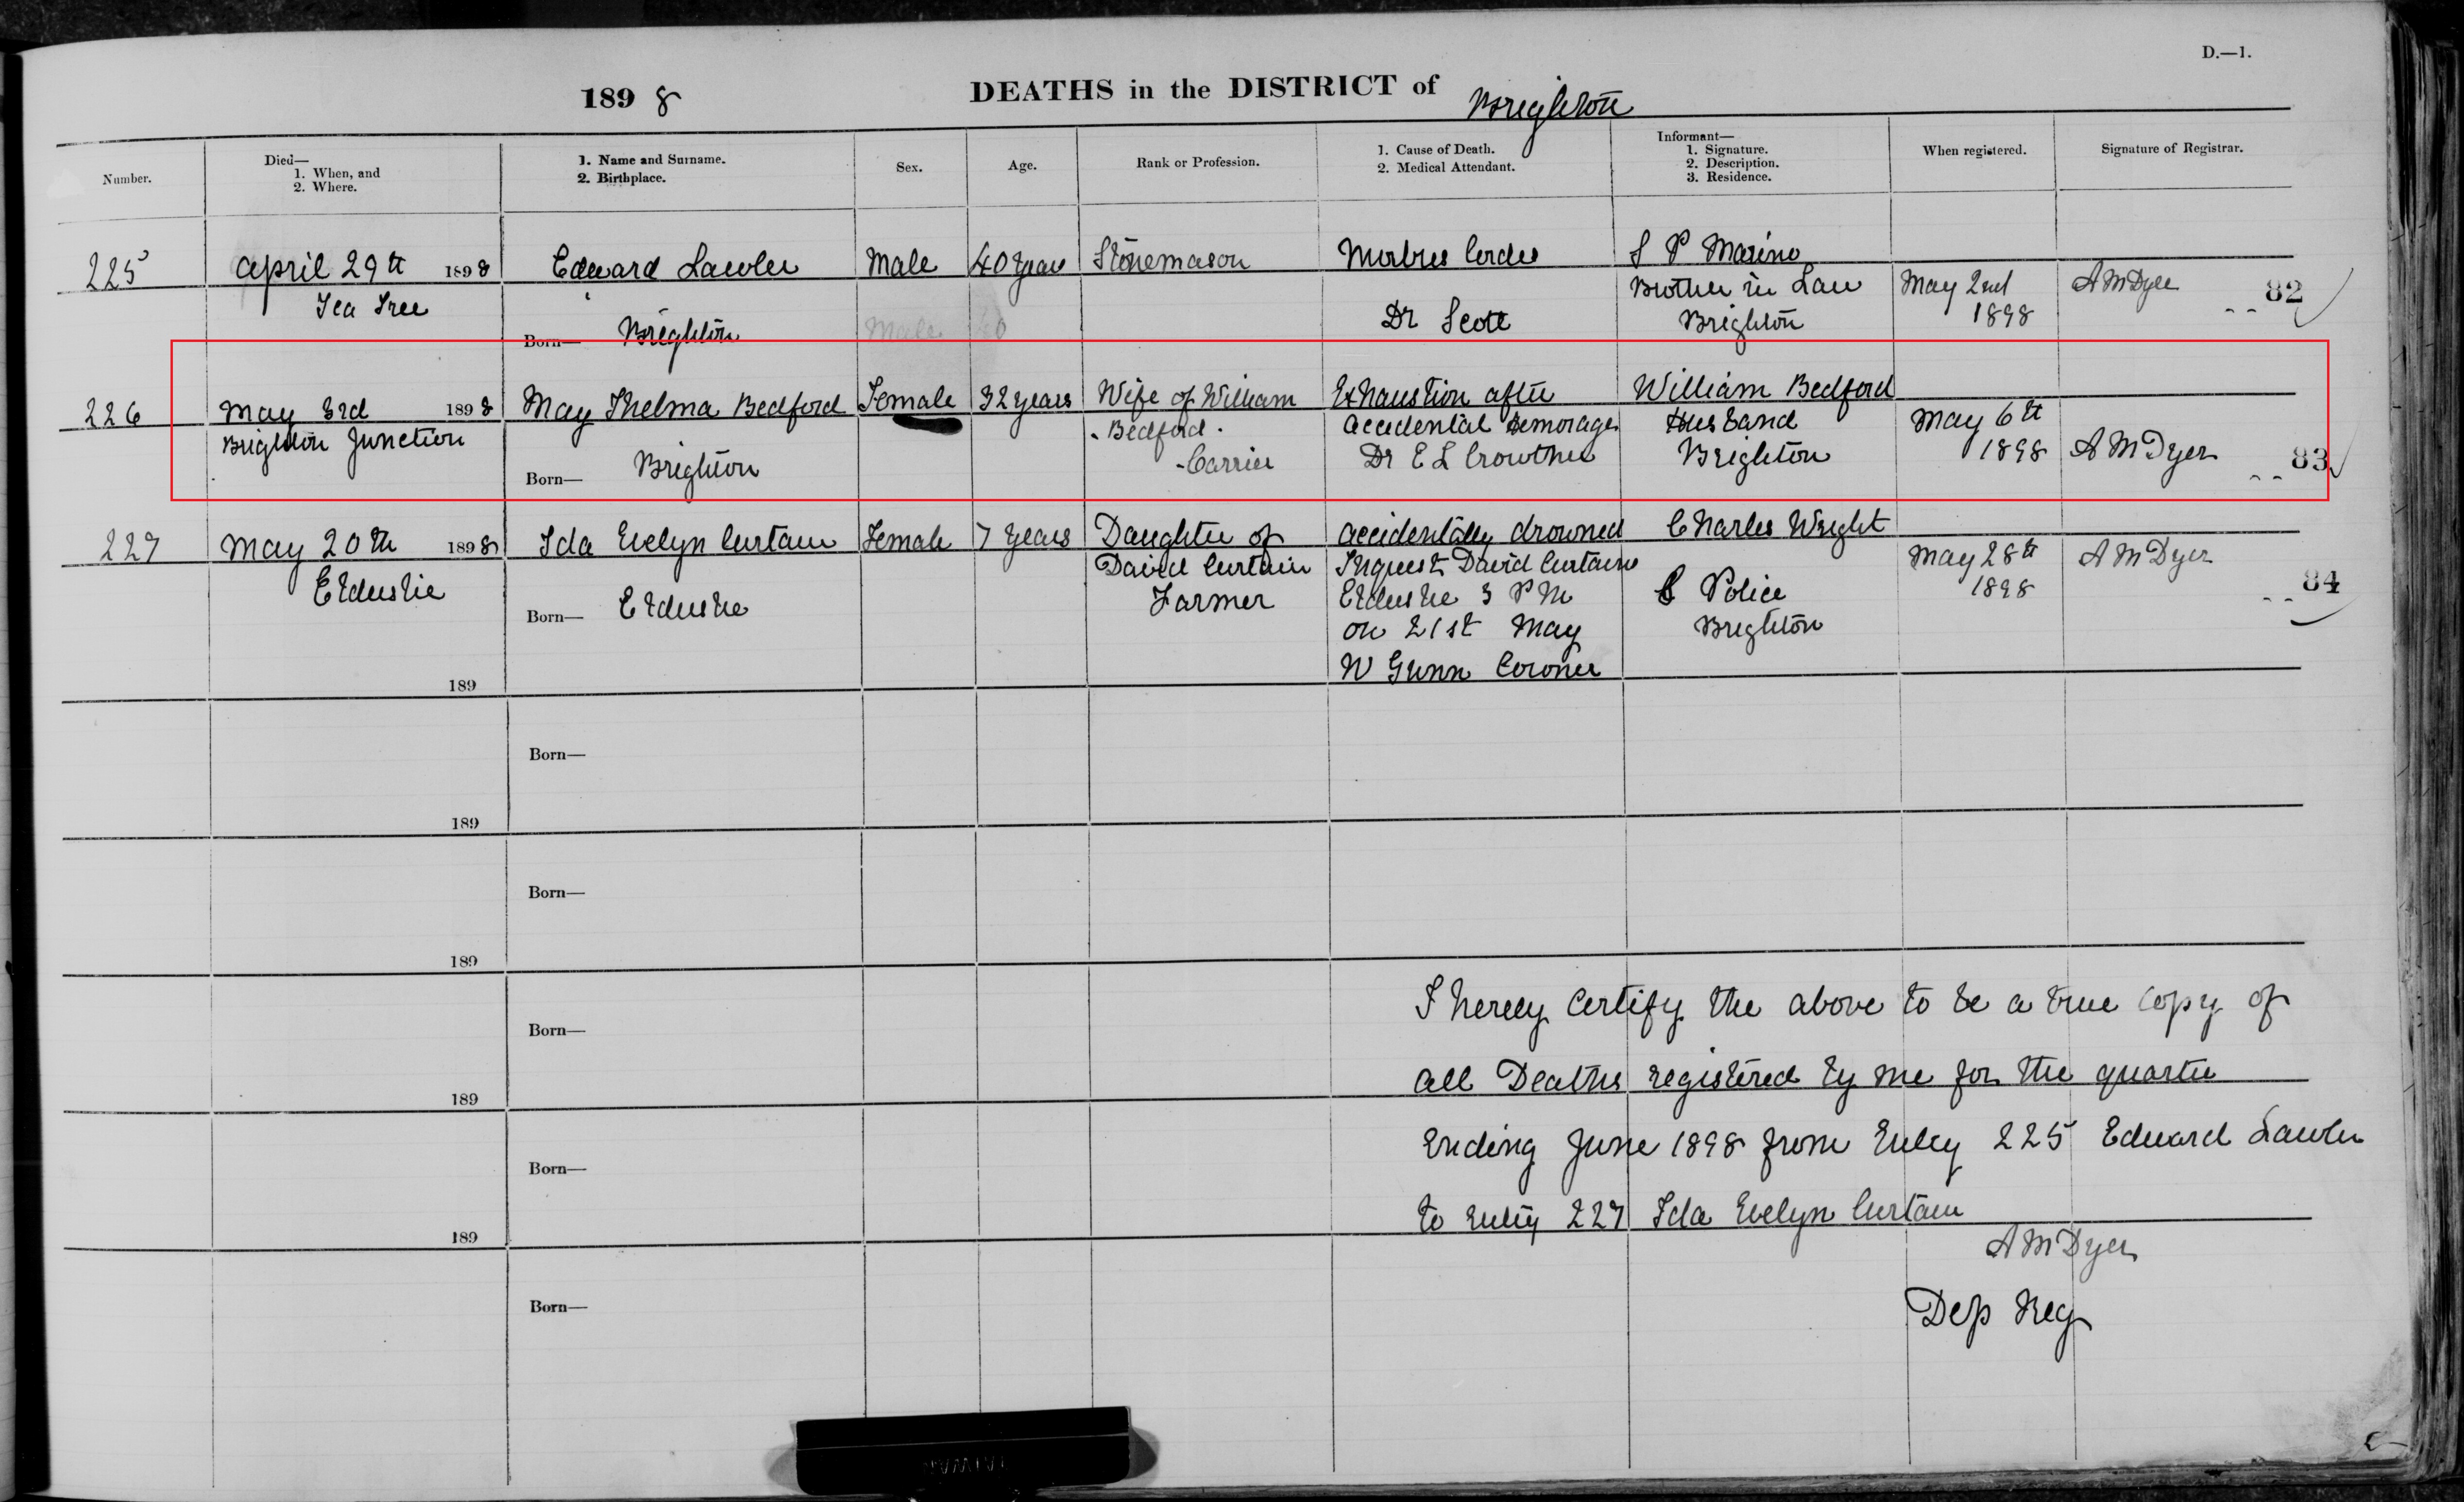 D.—1.
1898 DEATHS in the DISTRICT of Brighton
Number.
Died—
1. When, and
2. Where.
1. Name and Surname.
2. Birthplace.
Sex.
Age.
Rank or Profession.
1. Cause of Death.
2. Medical Attendant.
Informant—
1. Signature.
2. Description.
3. Residence.
When registered.
Signature of Registrar.
225 April 29th 1898 Edward Lawler Male 40 Years Stonemason Morbus Cordis S P Marino
Tea Tree Brother in Law May 2nd A M Dyer 82
Born— Brighton Male 40 Dr Scott Brighton 1898
226 May 3rd 1898 May Thelma Bedford Female 32 years Wife of William Exhaustion after William Bedford
Brighton Junction Bedford accidental Hemorage Husband May 6th
Born— Brighton Carrier Dr E L Crowther Brighton 1898 A M Dyer 83
227 May 20th 1898 Ida Evelyn Curtain Female 7 Years Daughter of accidentally drowned Charles Wright
David Curtain Inquest David Curtains May 28th A M Dyer
Elderslie Born— Elderslie Farmer Elderslie 3 PM Police 1898 84
on 21st May Brighton
W Gunn Coroner
189
Born—
189
Born—
189
Born—
189
Born—
189
Born—
I hereby certify the above to be a true copy of
all Deaths registered by me for the quarter
Ending June 1898 from Entry 225 Edward Lawler
to entry 227 Ida Evelyn Curtain
A M Dyer
Dep Reg